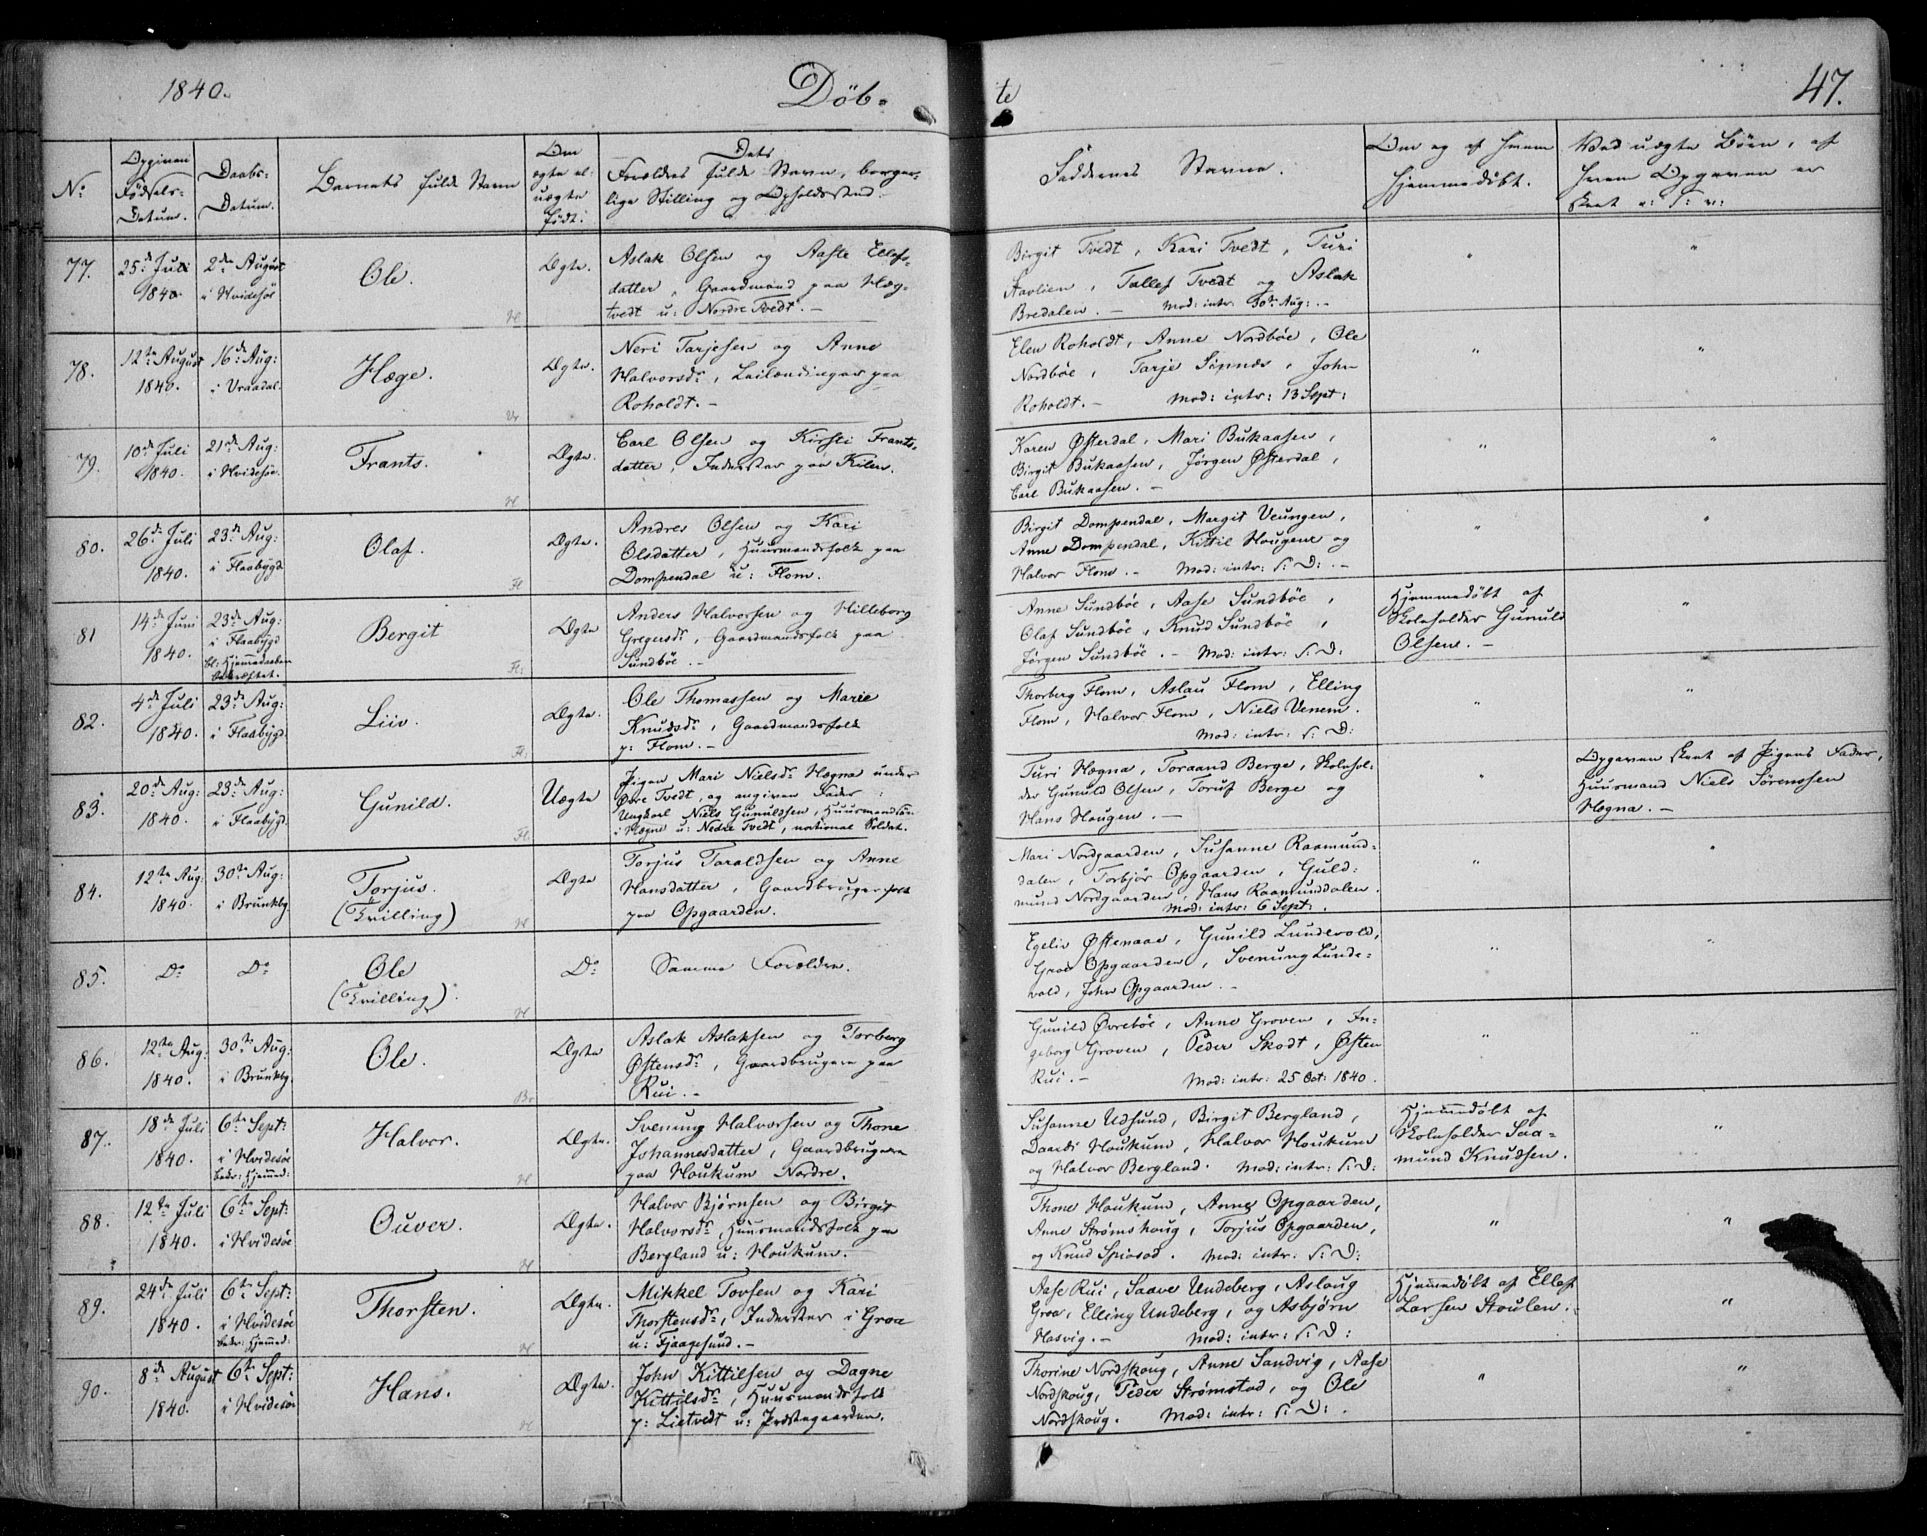 1840.
Døb-
te
47.
No
Opgiven Fødsels-Datum.
Daabs-Datum.
Barnets fulde Navn
Om ægte el: uægte født:
Dets Forældres fulde Navn, borger-
lige Stilling og Opholdssted.
Faddernes Navne.
Om og af hvem hjemmedøbt.
Ved uægte Børn, af hvem Opgaven er skeet
77.
25de Juli 1840
2den August i Hvidesøe
Ole.
Ægte.
Aslak Olsen og Aaste Ellefs-
datter, Gaardmand paa Hæg-
tvedt u: Nordre Tvedt. -
Birgit Tvedt, Kari Tvedt, Turi
Aavlien, Tallef Tvedt og Aslak
Bredalen. - Mod: intr: 30te Aug: -
78.
12te August 1840.
16de Aug: i Vraadal.
Hæge.
Ægte.
Neri Tarjesen og Anne
Halvorsdr, Leilændinger paa
Roholdt. -
Elen Roholdt, Anne Nordbøe, Ole
Nordbøe, Tarje Sinnes, John
Roholdt. - Mod: intr: 13 Sept:
79.
10de Juli 1840.
21de Aug: i Hvidesøe.
Frants.
Ægte.
Carl Olsen og Kirsti Frants-
datter, Inderster paa Kilen.
Karen Østerdal, Mari Bukaasen,
Birgit Bukaasen, Jørgen Østerdal,
Carl Bukaasen. -
80.
26de Juli 1840.
23de Aug: i Flaabygd
Olaf.
Ægte.
Andres Olsen og Kari
Olsdatter, Huusmandsfolk paa
Dompendal u: Flom.
Birgit Dompendal, Margit Veungen,
Anne Dompendal, Kittil Hougene og
Halvor Flom. - Mod: intr: s: D: -
81
14de Juni 1840.
23de Aug: i Flaabygd
bl: Hjemmedaaben bekræftet.
Bergit
Ægte
Anders Halvorsen og Hilleborg
Gregersdr, Gaardmandsfolk paa
Sundbøe. -
Anne Sundbøe, Aase Sundbøe,
Olaf Sundbøe, Knud Sundbøe,
Jørgen Sundbøe. - Mod: intr: s: D:
Hjemmedøbt af
Skoleholder Gunuld
Olsen. -
82.
4de Juli 1840.
23de Aug: i Flaabygd.
Liiv.
Ægte.
Ole Thomassen og Marie
Knudsdr, Gaardmandsfolk
p: Flom. -
Thorberg Flom, Aslau Flom, Elling
Flom, Halvor Flom, Niels Venem.
Mod: intr: s: D:
83.
20de Aug: 1840.
23de Aug: i Flaabygd.
Gunild.
Uægte
Pigen Mari Nielsdr Hægna under
Øvre Tvedt, og angiven Fader:
Ungkarl Niels Gunuldsen, Huusmandssøn
i Hægne u: Nedre Tvedt, national Soldat.
Turi Hægna, Toraand Berge, Skolehol-
der Gunuld Olsen, Toruf Berge og
Hans Hougen. -
Opgaven skeet af Pigens Fader,
Huusmand Niels Sørenssen
Hægna. -
84.
12te Aug: 1840.
30te Aug: i Brunkbg.
Torjus.
(Tvilling)
Ægte
Torjus Taraldsen og Anne
Hansdatter, Gaardbrugerfolk
paa Opgaarden.
Mari Nordgaarden, Susanne Raamund-
dalen, Torbjør Opgaarden, Guld-
mund Nordgaarden, Hans Raamunddalen.
Mod: intr: 6 Sept:.
85.
Do
Do
Ole
(Tvilling).
Do
Samme Forældre.
Egeliv Østenaae, Gunild Lundevold,
Groe Opgaarden, Svenung Lunde-
vold, John Opgaarden. -
86.
12te Aug: 1840.
30te Aug: i Brunkbg.
Ole.
Ægte
Aslak Aslaksen og Torberg
Østensdr, Gaardbrugere paa
Rui. -
Gunild Øvrebøe, Anne Groven, In-
geborg Groven, Peder Skodt, Østen
Rui. - Mod: intr: 25 Oct: 1840.
87.
18de Juli 1840.
6te Sept: i Hvidesøe
bekr: Hjemmed:
Halvor.
Ægte.
Svenung Halvorsen og Thone
Johannesdatter, Gaardbrugere
paa Houkum Nordre.
Susanne Udsund, Birgit Bergland,
Daardi Houkum, Halvor Houkum
og Halvor Bergland. Mod: intr: s: D:
Hjemmedøbt af
Skoleholder Saa-
mund Knudsen.
88.
12te Juli 1840.
6te Sept: i Hvidesøe
Ouver.
Ægte.
Halvor Bjørnsen og Birgit
Halvorsdr, Huusmandsfolk paa
Bergland u: Houkum.
Thone Houkum, Anne Opgaarden,
Anne Strømskoug, Torjus Opgaarden,
og Knud Spiosod. Mod: intr: s: D:
89.
24de Juli 1840.
6te Sept: i Hvidesøe
bekr: Hjemmed:
Thorsten.
Ægte.
Mikkel Tovsen og Kari
Thorstensdr, Inderster i Groe
u: Fjaagesund. -
Aase Rui, Saave Undeberg, Aslaug
Groe, Elling Undeberg, og Asbjørn
Hasvig. - Mod: intr: s: D:
Hjemmedøbt af Ellef
Larsen Stoulen.
90.
8de August 1840.
6te Sept: i Hvidesøe
Hans.
Ægte.
John Kittilsen og Dagne
Kittilsdr, Huusmandsfolk
p: Lietvedt u: Præstegaarden.
Thorine Nordskoug, Anne Sandvig, Aase
Nordskoug, Peder Strømstad, og Ole
Nordskoug. Mod: intr: s: D:.